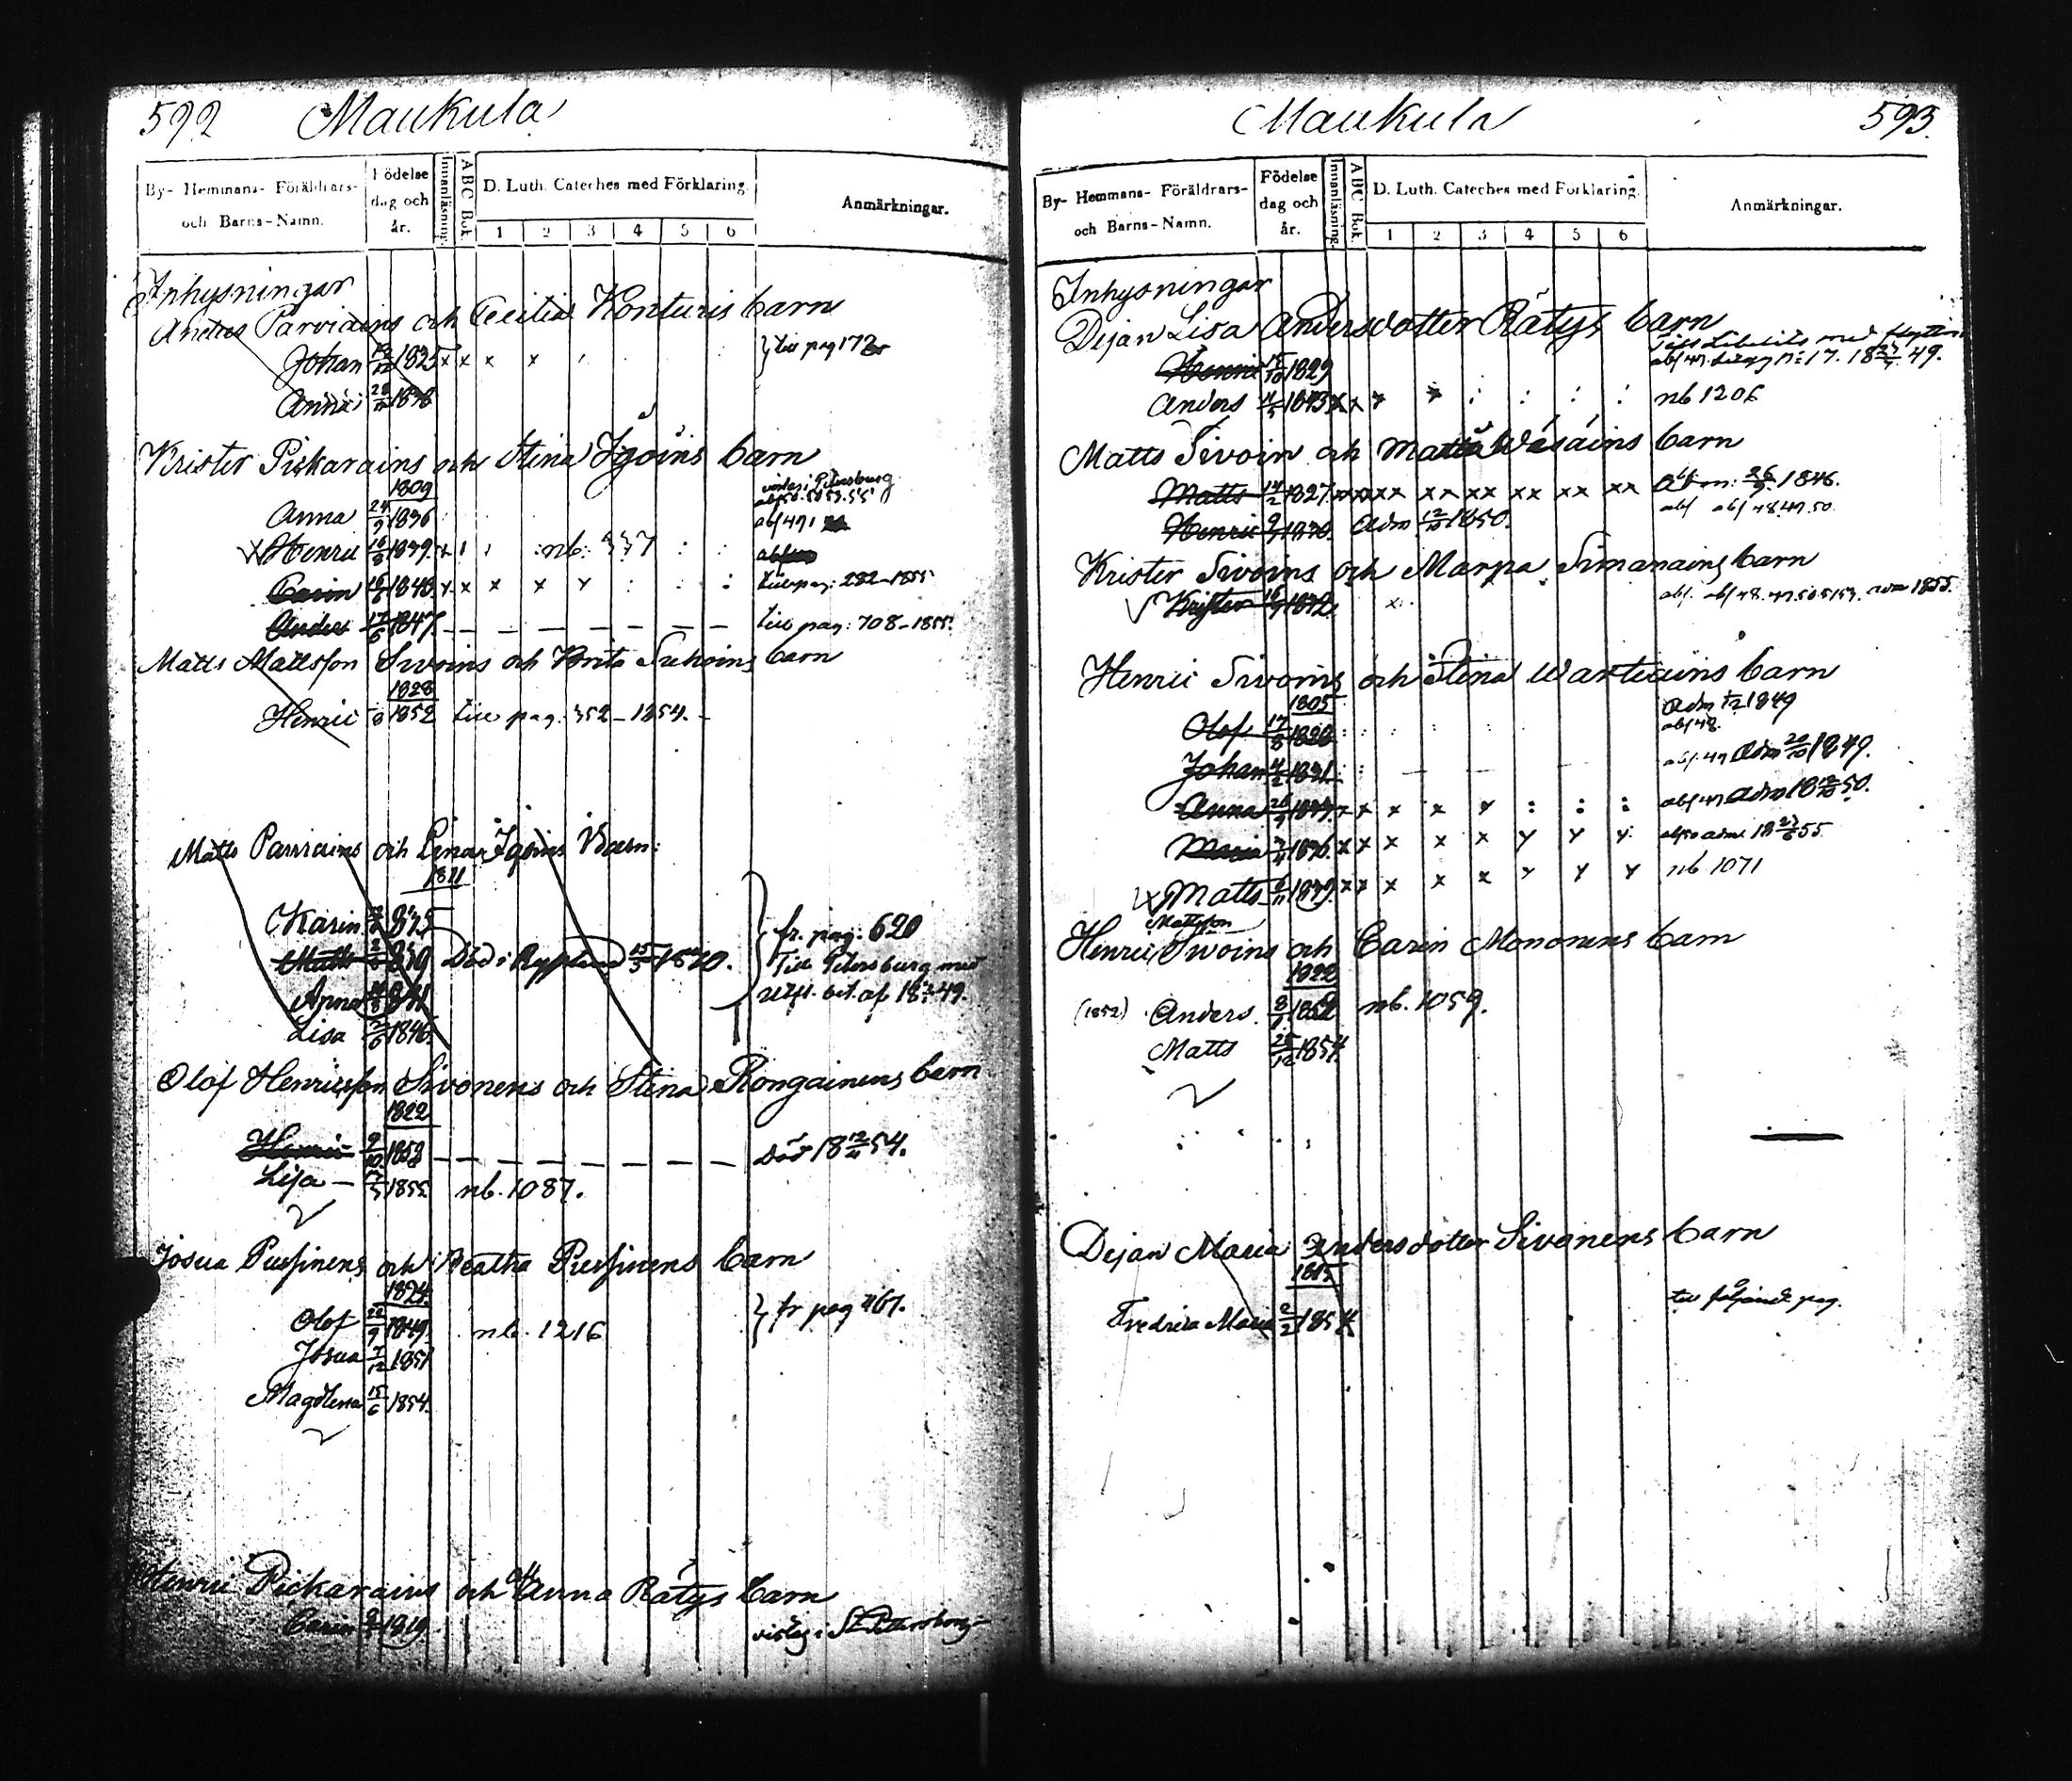 592 Maukula
By- Hemmans- Föräldrars- och Barns-Namn.
Födelse dag och år.
Innanläsning.
ABC Bok.
D. Luth. Cateches med Förklaring.
1 2 3 4 5 6
Anmärkningar.
Inhysningar
Anders Parviains och Cecilia Konturis barn
Johan 1825 x x x x } till pag 172
Anna
Krister Pickarains och Stina Igoins barn
1809
Anna 24/9 1836 vistas i Petersburg
Henric 16/8 1839. nb: 337
Carin 1843 x x x x till pag: 282-1855
Anders 17/6 1847. — — — — — — till pag: 708-1855.
Matts Mattsson Sivoins och Brita Suhoins barn
1828
Henric 1852 till pag: 352-1854.
Matts Parviains och Lina Igoins Barn:
1811
Karin 1835 fr. pag: 620
Matts 1839 Död i Ryssland 15/5 1840. Till Petersburg med
Anna 1841 utfl. bet. af
Lisa 1846.
Olof Henricsson Sivonens och Stina Rongainens barn
1822
Henric 9/10 1853 — — — — — — — död 18 12/4 54.
Lisa — 1855. nb. 1087.
Josua Pussinens och Beatha Pussinens barn
1824.
Olof 22/9 1849 nb. 1216 } fr pag 467.
Josua 7/12 1851
Magdlena 15/6 1854.
Henric Pickarains och Anna Rätys barn
Carin 1819 vistas i St Petersborg
Maukula 593.
By- Hemmans- Föräldrars- och Barns-Namn.
Födelse dag och år.
Innanläsning.
ABC Bok.
D. Luth. Cateches med Förklaring.
1 2 3 4 5 6
Anmärkningar.
Inhysningar
Dejan Lisa Andersdotter Rätys barn
Henric 15/10 1829
Anders 1843 x x x x : : : : nb 1206
Matts Sivoin och Wäsäins barn
Matts 14/2 1827. xx xx xx xx xx xx 1846.
Henric 1830. adm 12/10 1850.
Krister Sivoins och Marpa Simanains barn
Krister 1832.
Henric Sivoins och Stina Wartiains barn
1805
Olof 17/8 1828 adm 1849
Johan 4/2 1831 adm 20/10 1849.
Anna 1833. x x x x : : : adm 50.
Maria 1836. x x x x x y y y. 55.
Matts 1839. x x x x x y y y nb 1071
Mattsson
Henric Sivoins och Carin Mononens barn
1822
(1852) Anders. 1852 nb. 1059.
Matts 25/12 1854.
Dejan Maria Andersdotter Sivonens barn
1815
Fredrica Maria 2/2 1854 till följande pag.